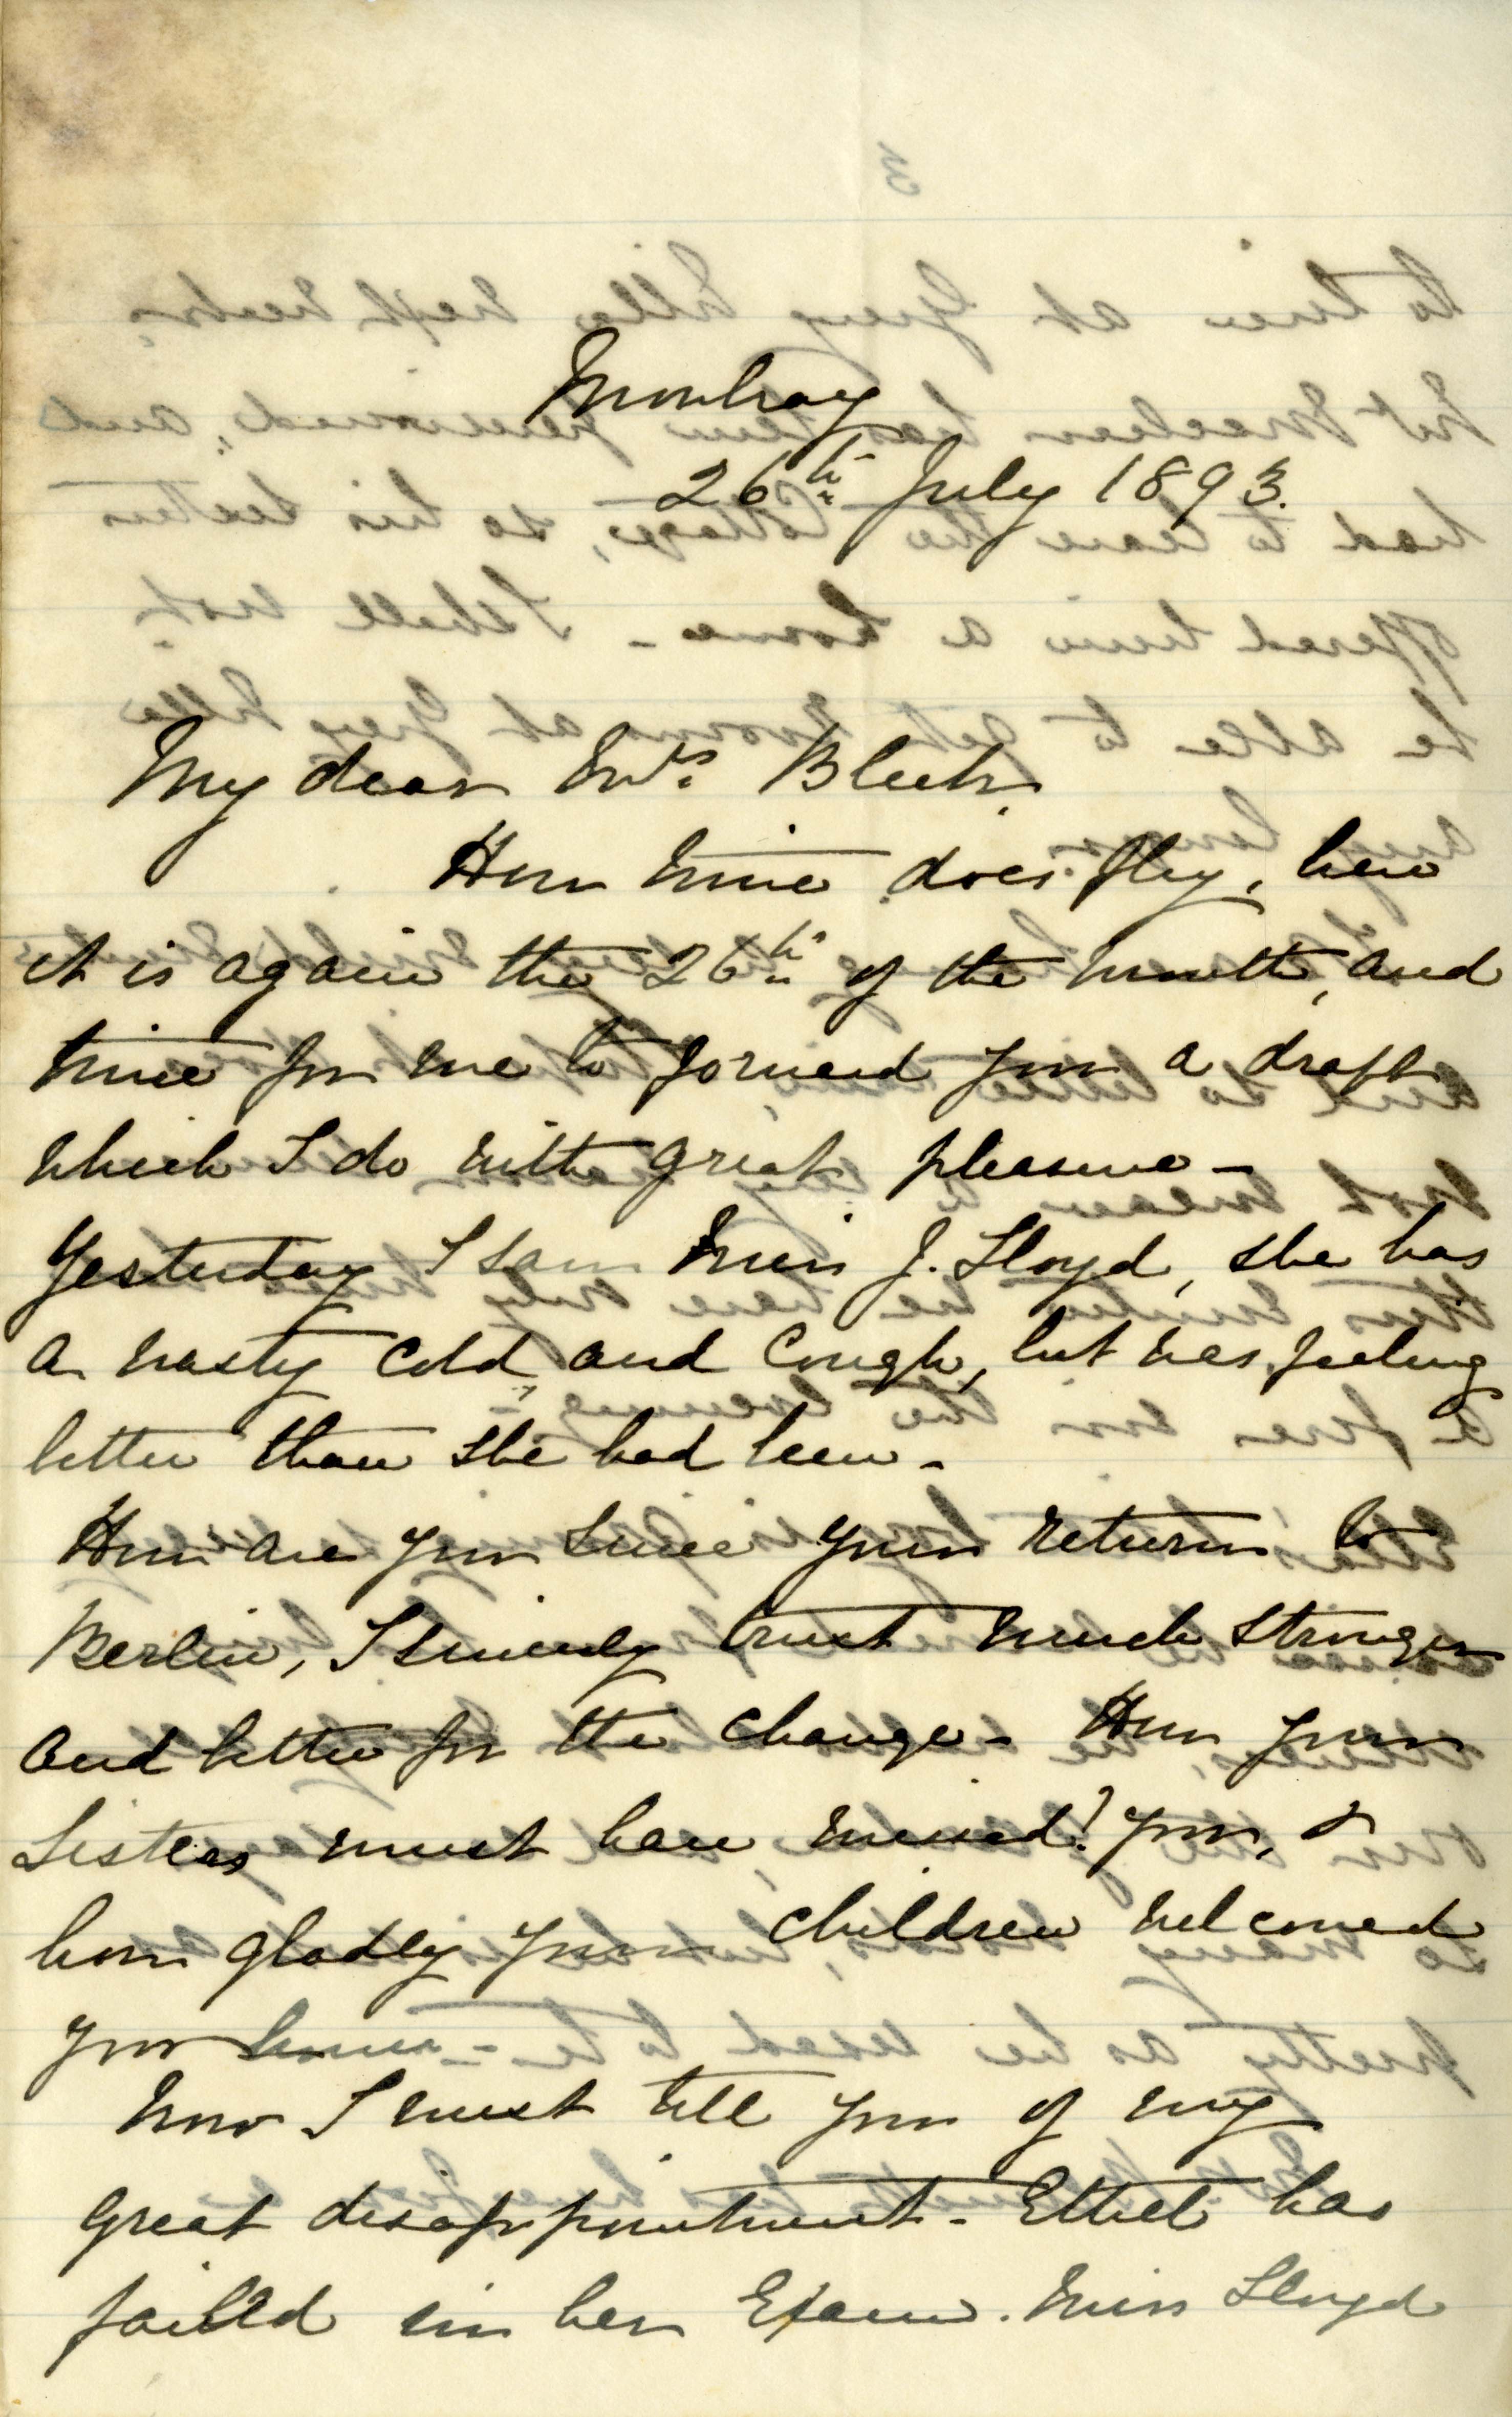 Mowbray
26th July 1893.
My dear Mrs. Bleek,
How time does fly, here
it is again the 26th of the month, and
time for me to forward you a draft
which I do with great pleasure -
Yesterday I saw Miss J. Lloyd, she has
a nasty cold, and cough, but was feeling
better than she had been -
How are you since your return to
Berlin, I sincerely trust much stronger
and better for the change - How your
Sisters must have missed? you, &
how gladly your children welcomed
you home -
Now I must tell you of my
great disappointment - Ethel has
failed in her Exam. Miss Lloyd